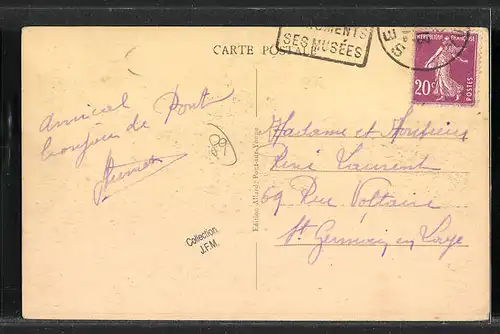 MENTS
SES MUSÉES
CARTE POSTALE
REPUBLIQUE FRANÇAISE
20c
POSTES
Amical
bonjour de Pont
Collection
J.F.M.
Edition Allard, Pont-sur-Yonne
Madame et Monsieur
René Laurent
69 Rue Voltaire
St Germain en Laye